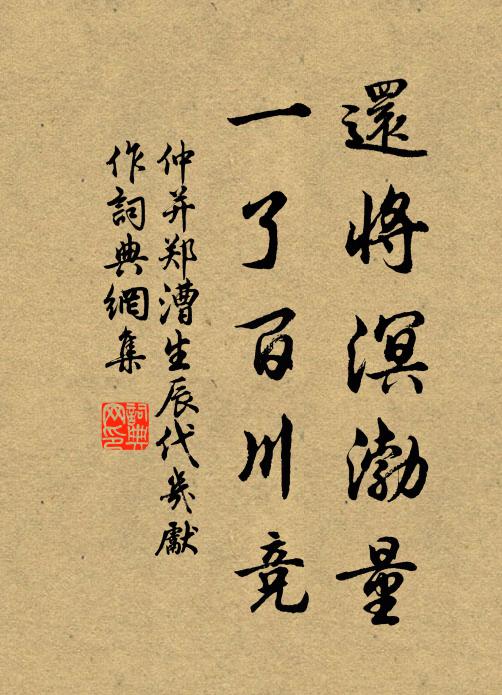 還將溟渤量
一了百川竞
仲并郑漕生辰代岁獻
作詞典網集
詞典网印